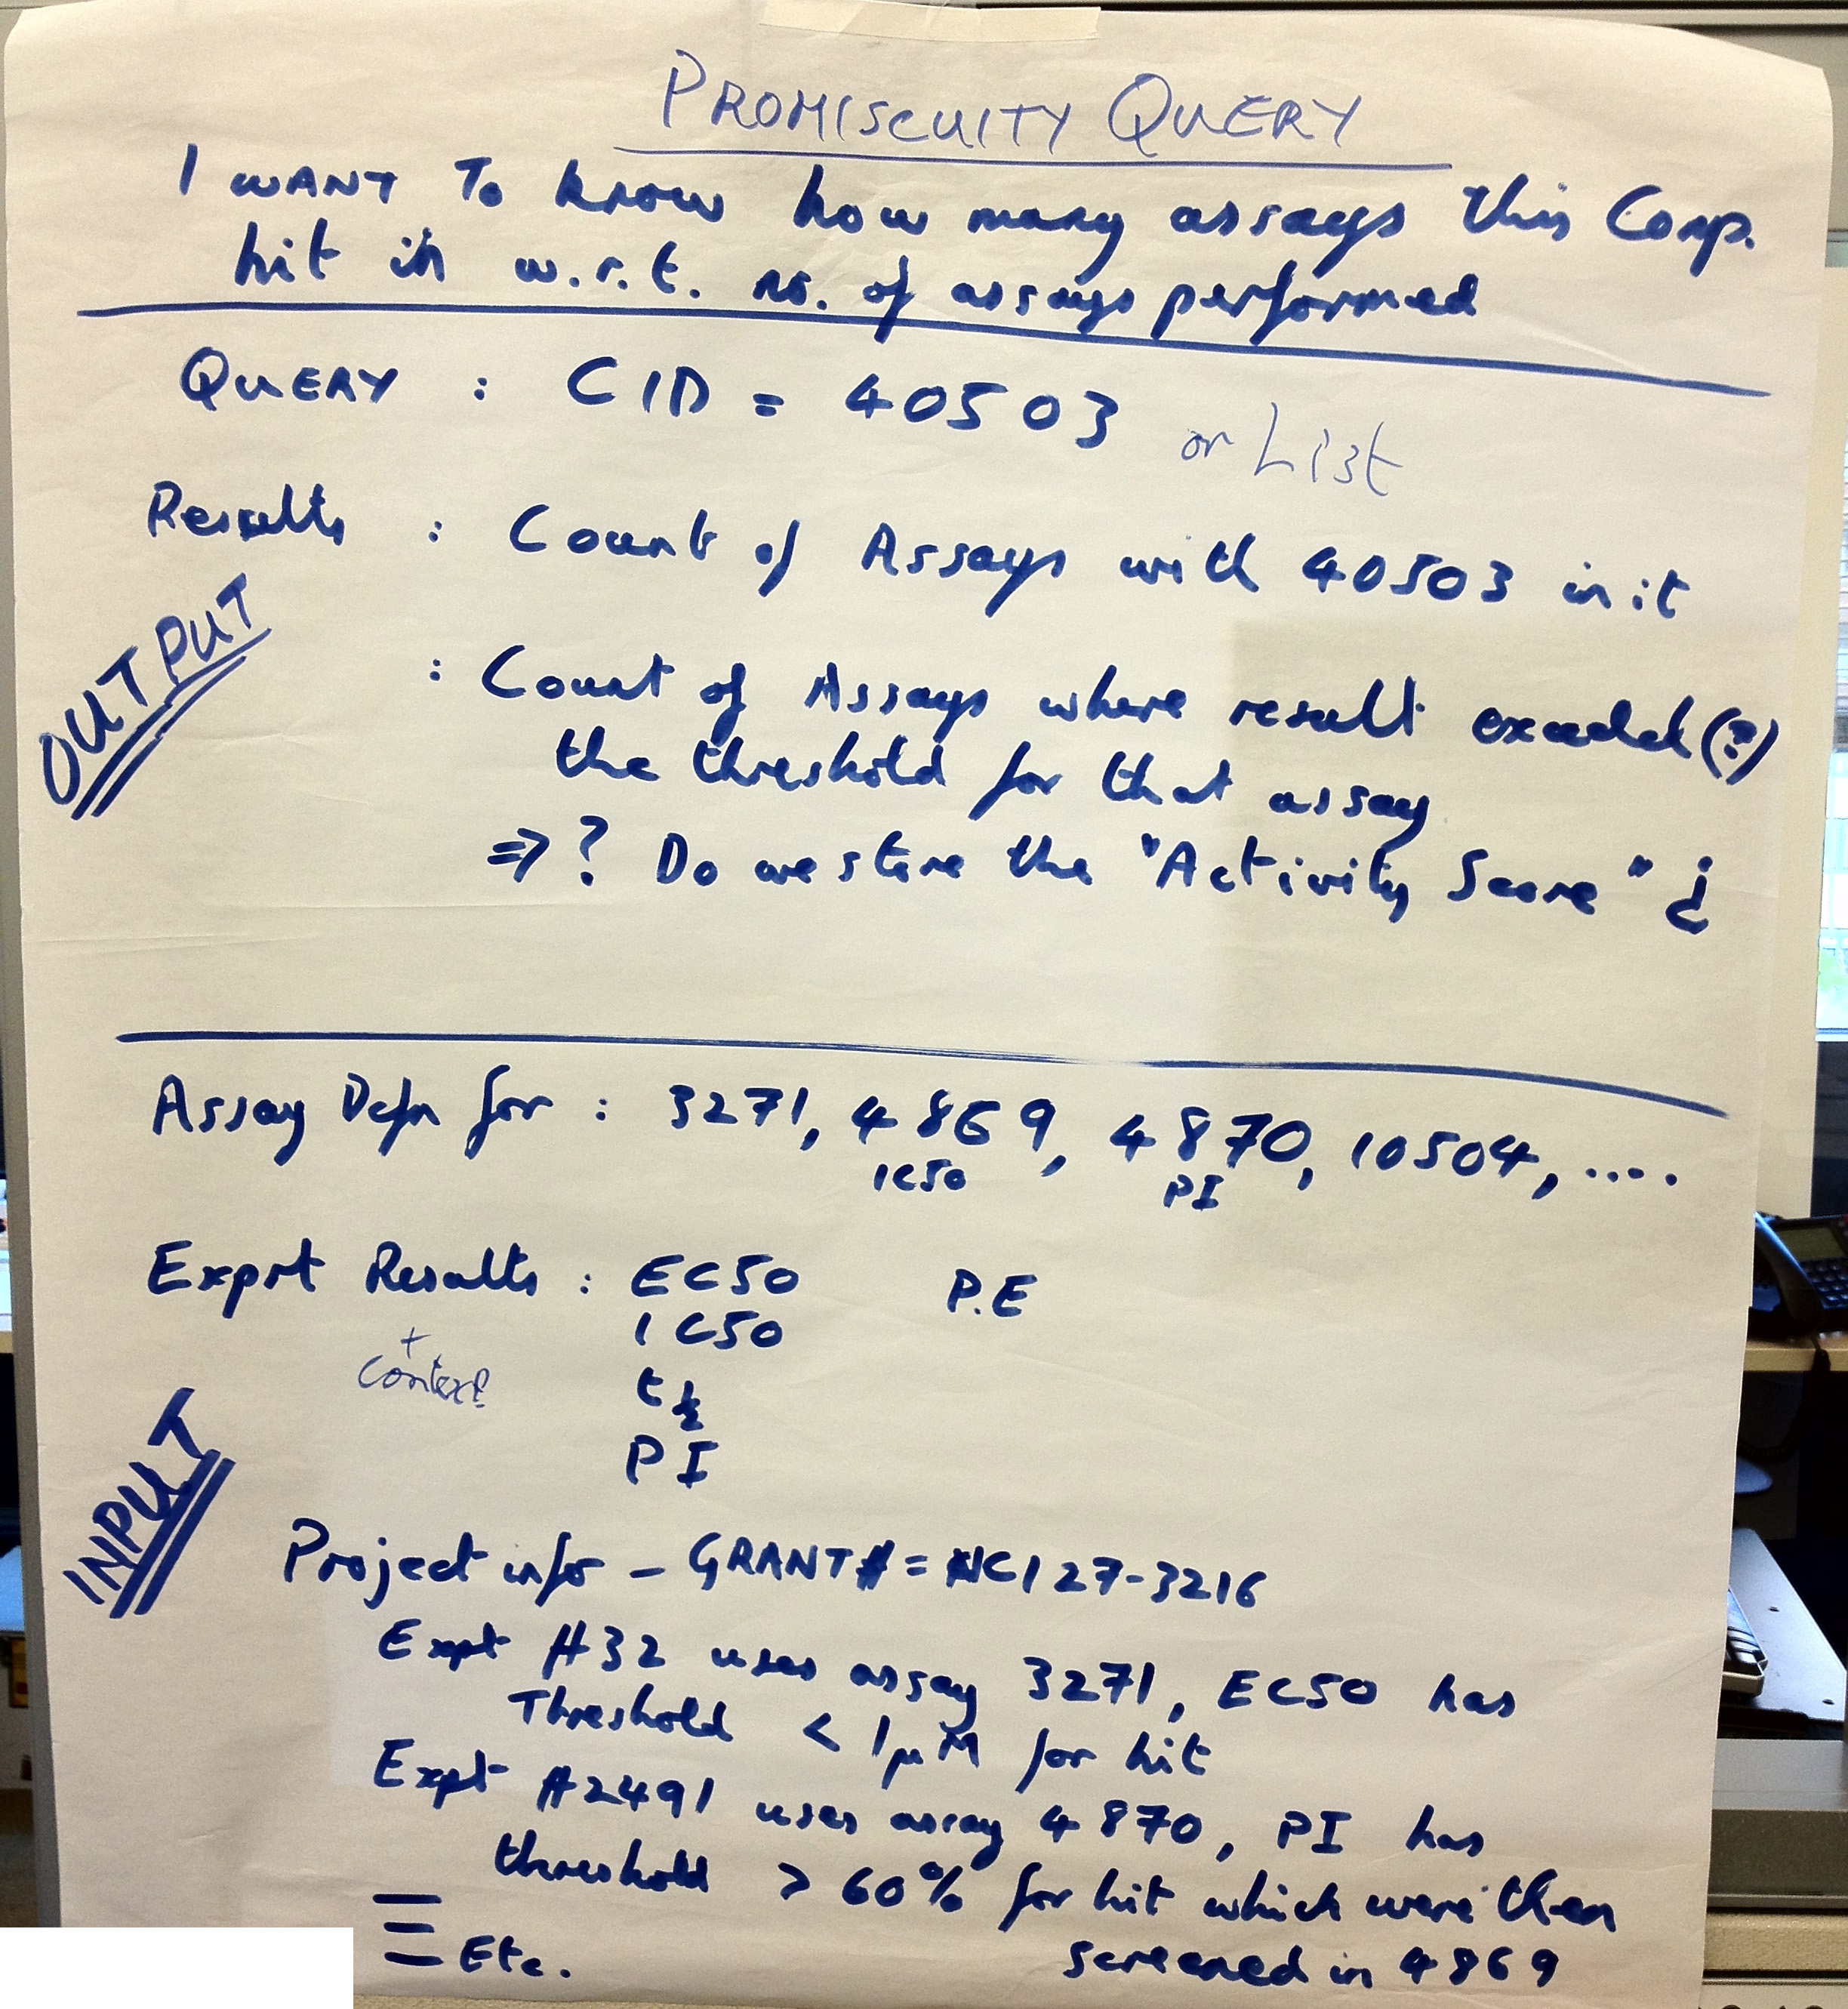 PROMISCUITY QUERY
I WANT TO know how many assays this Comp.
hit in w.r.t. no. of assays performed
QUERY : CID = 40503 or List
Results : Count of Assays with 40503 in it
OUTPUT
: Count of Assays where result exceeded(?)
the threshold for that assay
⇒ ? Do we store the "Activity Score" ¿
Assay Defn for : 3271, 4869, 4870, 10504, ....
IC50 PI
Exprt Results : EC50 P.E
+ Context
IC50
t½
PI
INPUT
Project info - GRANT# = NCI 27-3216
Expt #32 uses assay 3271, EC50 has
Threshold < 1µM for hit
Expt #2491 uses assay 4870, PI has
threshold > 60% for hit which were then
screened in 4869
Etc.